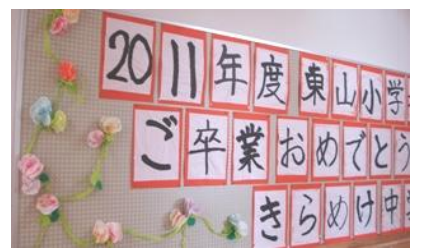 2011年度東山小学
ご卒業おめでとう
きらめけ中